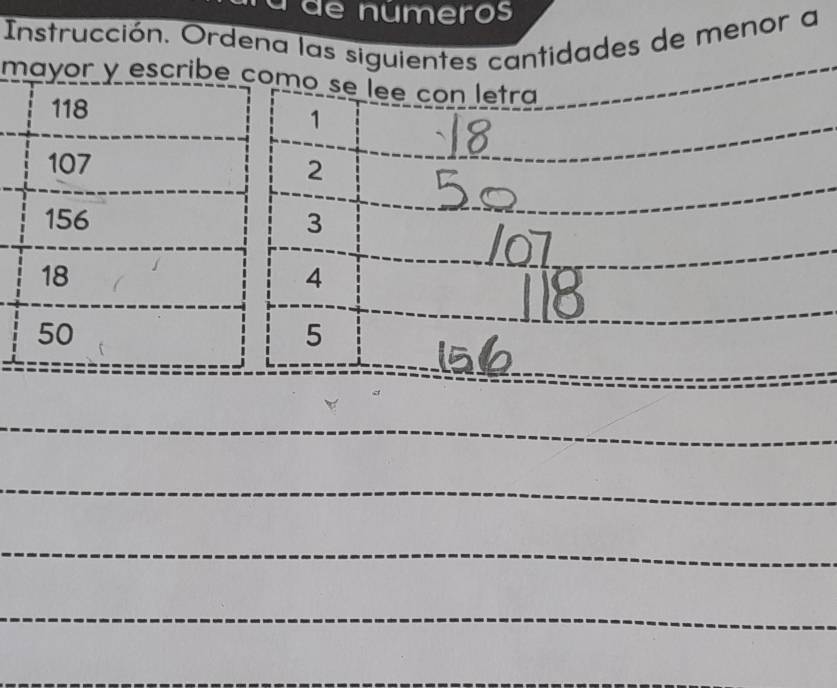 de números
Instrucción. Ordena las siguientes cantidades de menor a
mayor y escribe como se lee con letra
118
1
18
107
2
50
156
3
107
18
4
118
50
5
156